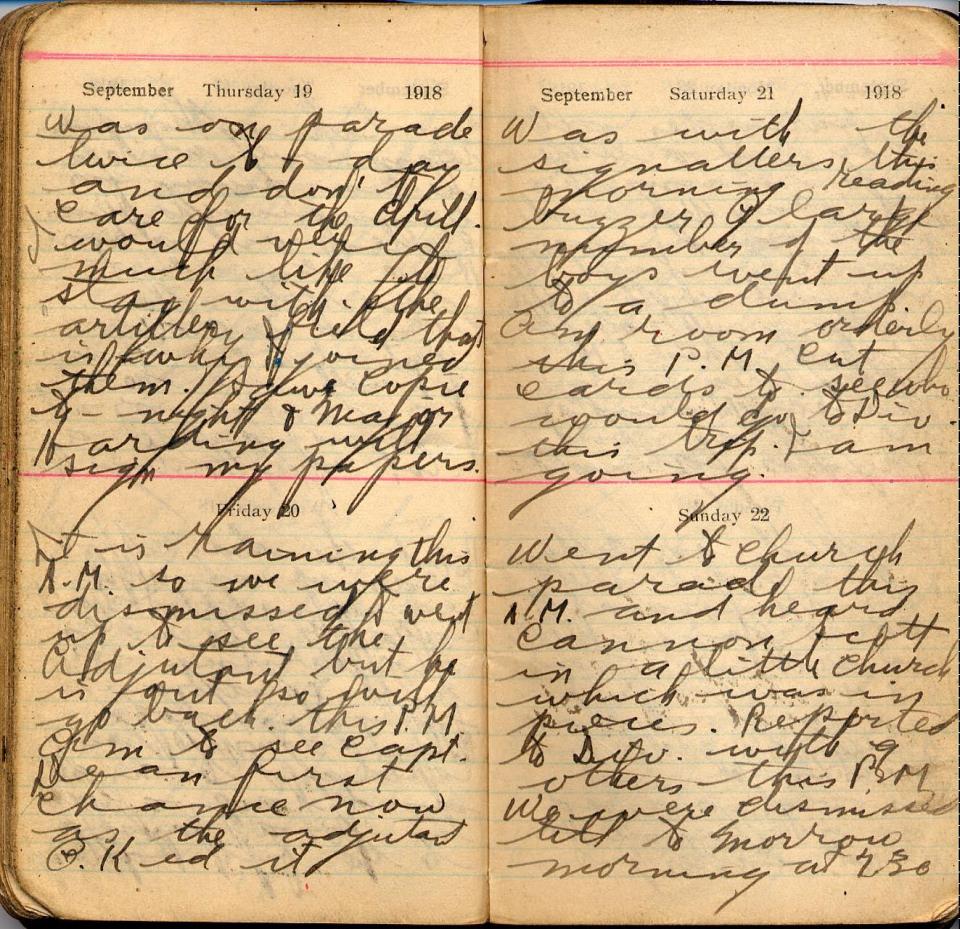 September Thursday 19 1918
Was on parade
twice to day
and don't
care for the drill.
I would very
much like to
stay with the
artillery field that
is why I joined
them.
to-night & Major
Harding will
sign my papers.
Friday 20
It is raining this
A.M. so we were
dismissed I went
up to see the
Adjutant but he
is out so will
go back this P.M.
Am to see Capt.
Dean first
chance now
as the adjutant
O.Ked it
September Saturday 21 1918
Was with the
signallers this
morning reading
buzzer. A large
number of the
boys went up
to a dump
Am room orderly
this P.M. Cut
cards to see who
would go to Div.
this trip. I am
going.
Sunday 22
Went to Church
parade this
A.M. and heard
Cannon Scott
in a little Church
which was in
pieces. Reported
to Div. with 9
others this P.M.
We were dismissed
till to morrow
morning at 7.30